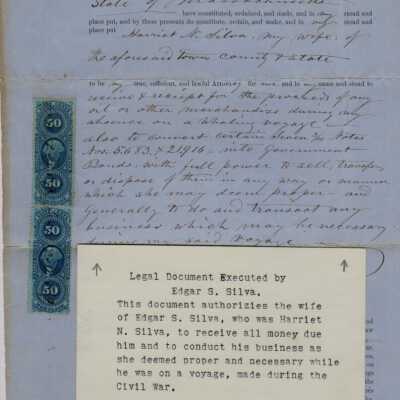 State of Massachusetts
have constituted, ordained, and made, and in my stead and
place put, and by these presents do constitute, ordain, and make, and in my stead and
place put
Harriet N. Silva, my wife, of
the aforesaid town county & state
to be my true, sufficient, and lawful Attorney for me, and in my name and stead to
receive & receipt for the proceeds of any
oil or other merchandise during my
absence on a Whaling voyage
also to convert certain Seven 3/10 Notes
Nos. 5683, 7 21916, into Government
Bonds, with full power to sell, transfer
or dispose of them in any way or manner
which she may deem proper and
Generally to do and transact any
business which may be necessary
during my said voyage
50
50
50
50
Legal Document Executed by
Edgar S. Silva.
This document authorizies the wife
of Edgar S. Silva, who was Harriet
N. Silva, to receive all money due
him and to conduct his business as
she deemed proper and necessary while
he was on a voyage, made during the
Civil War.